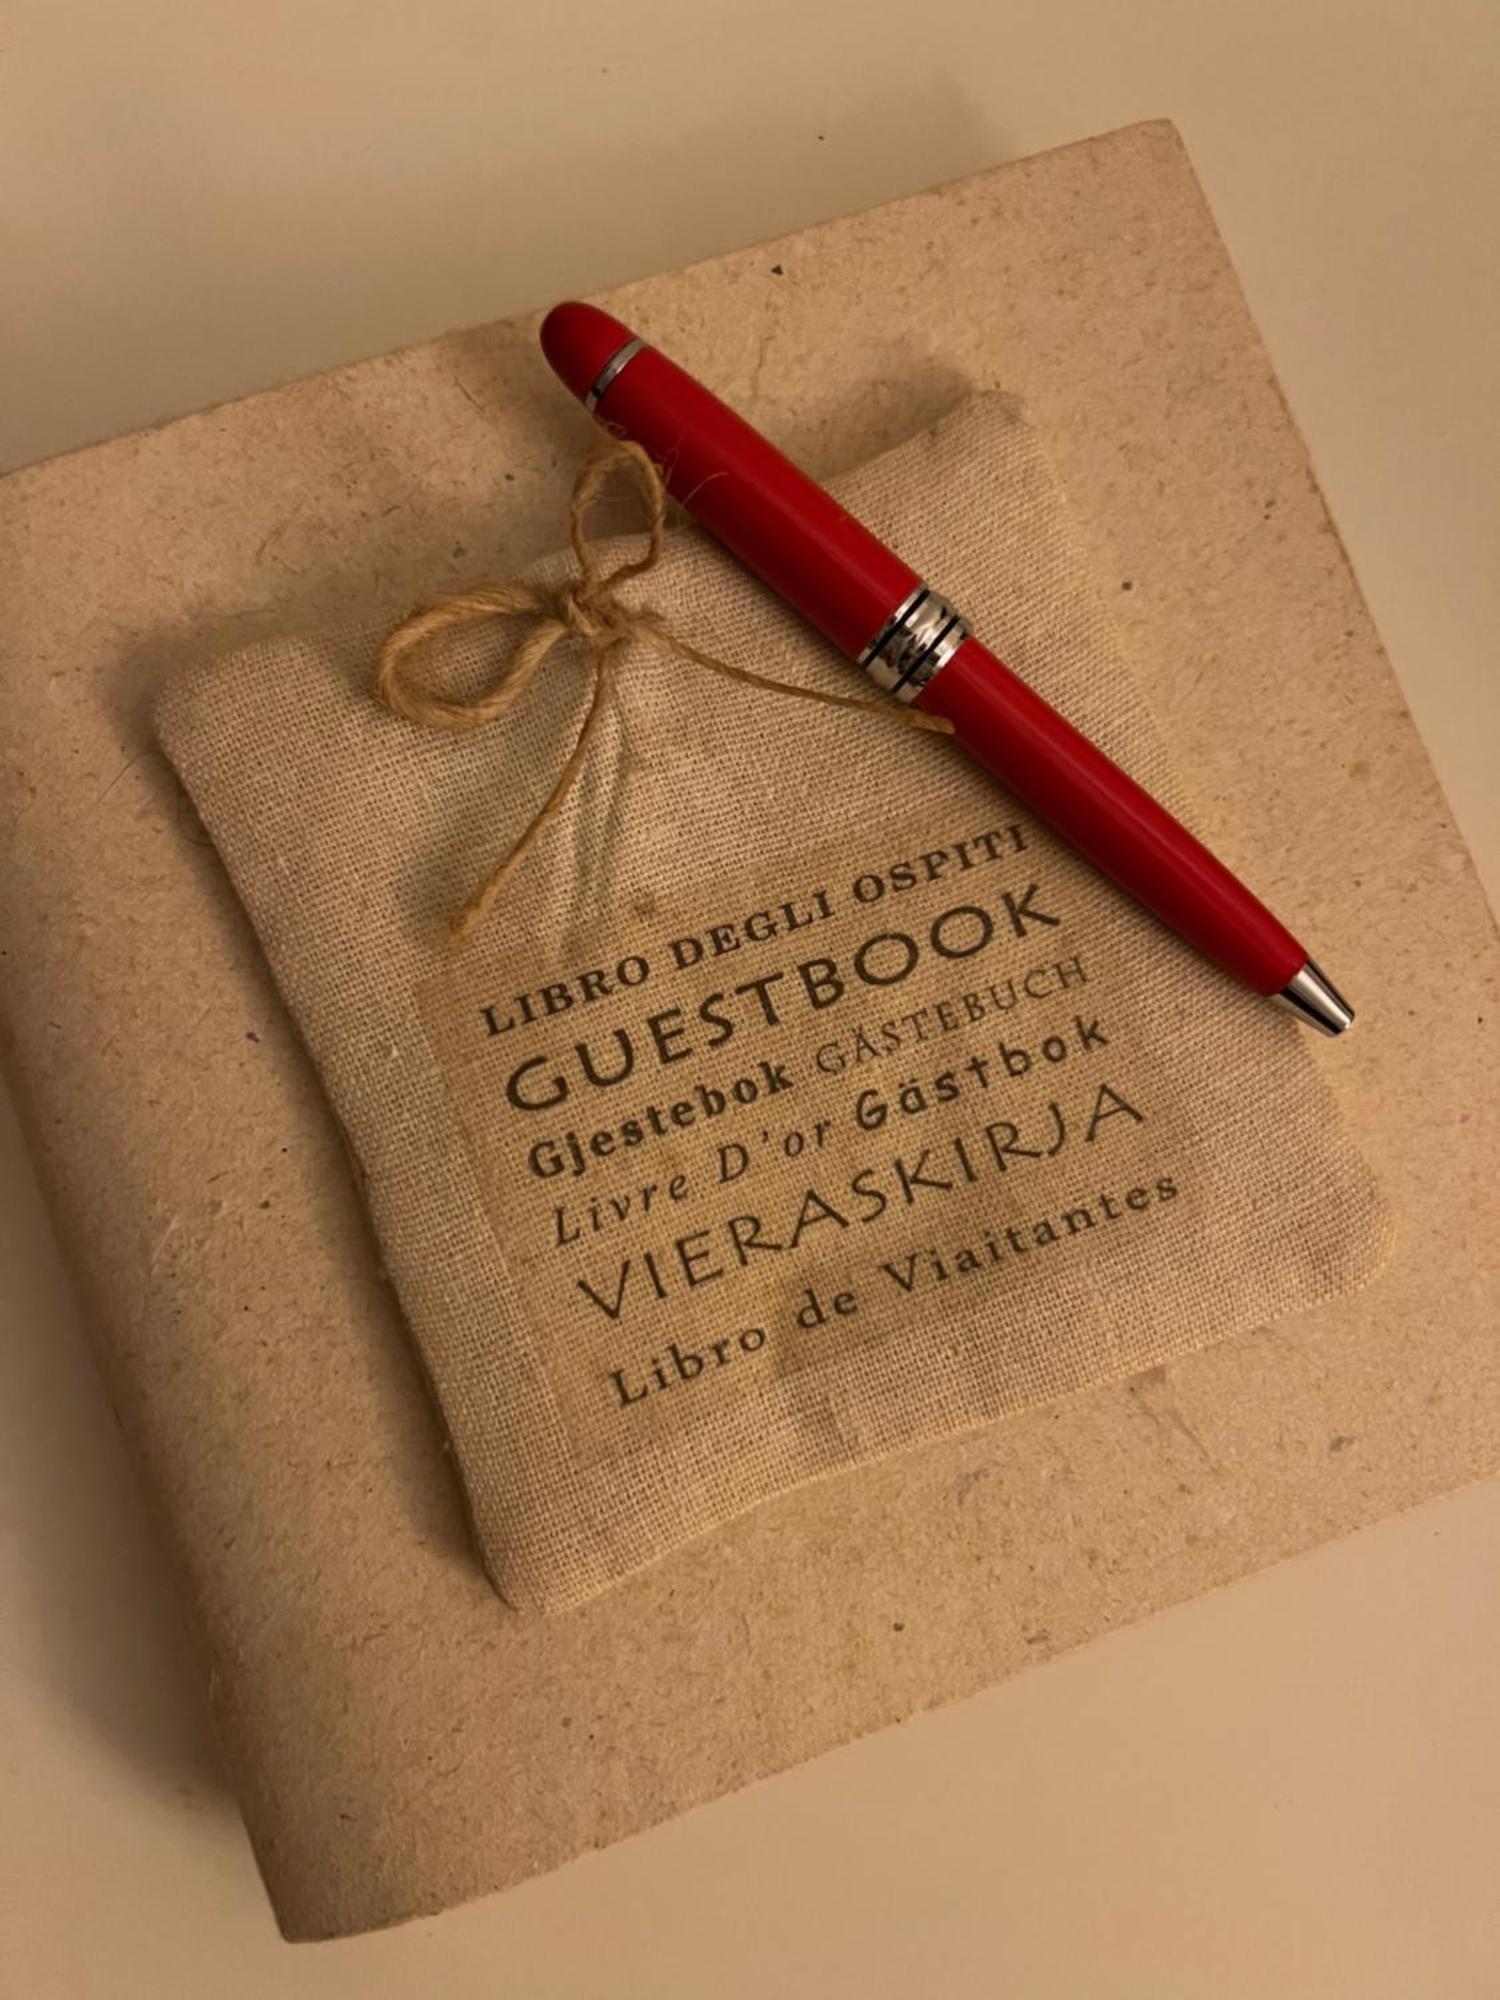 LIBRO DEGLI OSPITI
GUESTBOOK
Gjestebok GÄSTEBUCH
Livre D'or Gästbok
VIERASKIRJA
Libro de Viaitantes